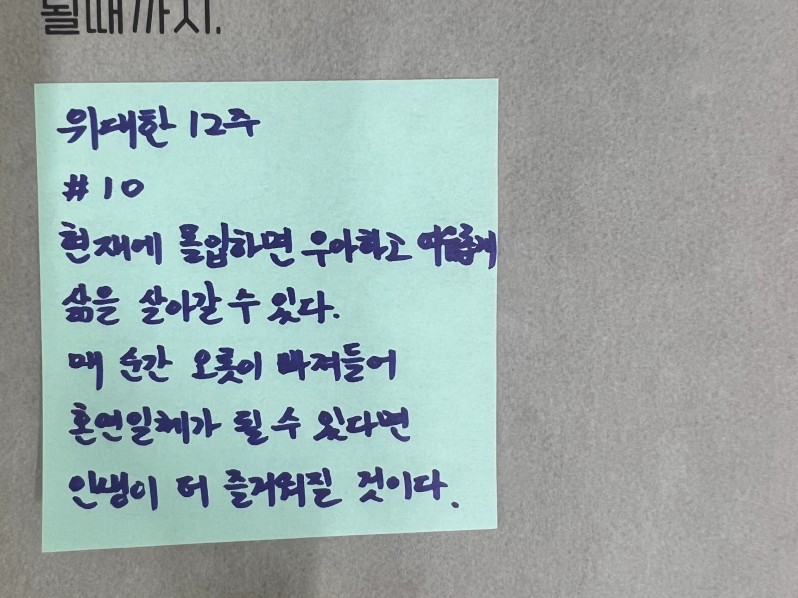 될때까지.
위대한 12주
#10
현재에 몰입하면 우아하고
삶을 살아갈 수 있다.
매 순간 오롯이 빠져들어
혼연일체가 될 수 있다면
인생이 더 즐거워질 것이다.